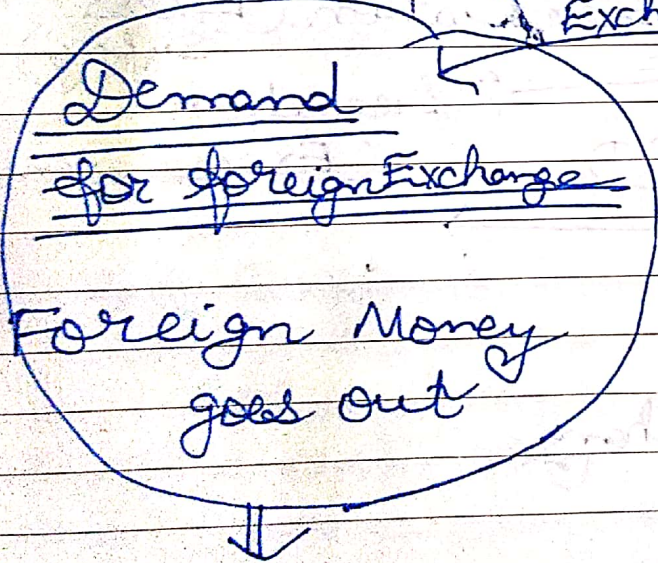 Exch
Demand
for foreign Exchange
Foreign Money
goes out